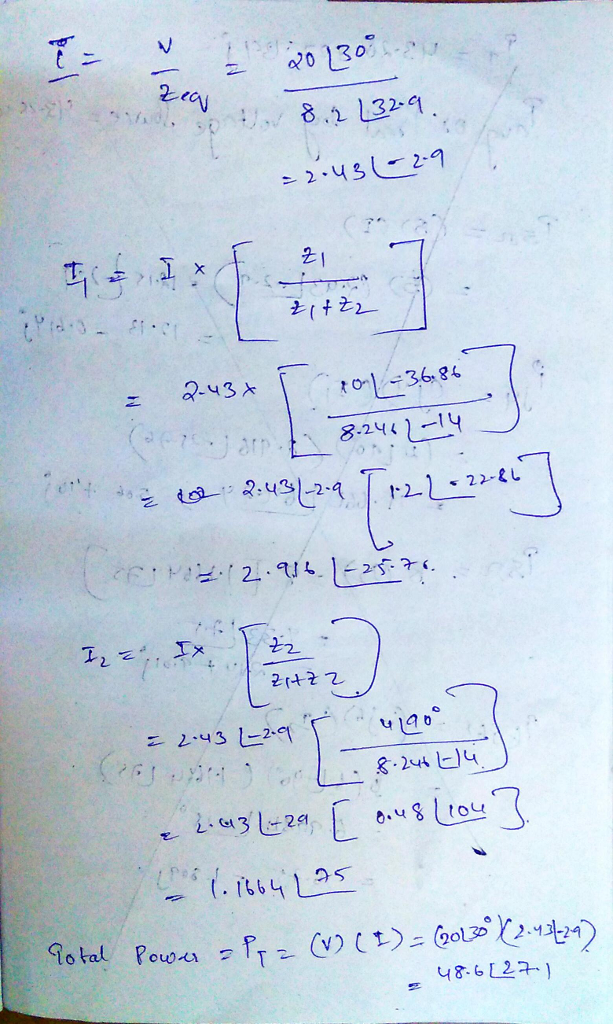 I = V / Zeq = 20∠30° / 8.2∠32.9
= 2.43∠-2.9
I1 = I × [ z1 / z1+z2 ]
= 2.43 × [ 10∠-36.86 / 8.246∠-14 ]
= 2.43∠-2.9 [ 1.2∠-22.86 ]
= 2.916∠-25.76.
I2 = I× [ z2 / z1+z2 ]
= 2.43∠-2.9 [ 4∠90° / 8.246∠-14 ]
= 2.43∠-29 [ 0.48∠104 ]
= 1.1664∠75
Total Power = PT = (V) (I) = (20∠30°)(2.43∠-29)
= 48.6∠27.1